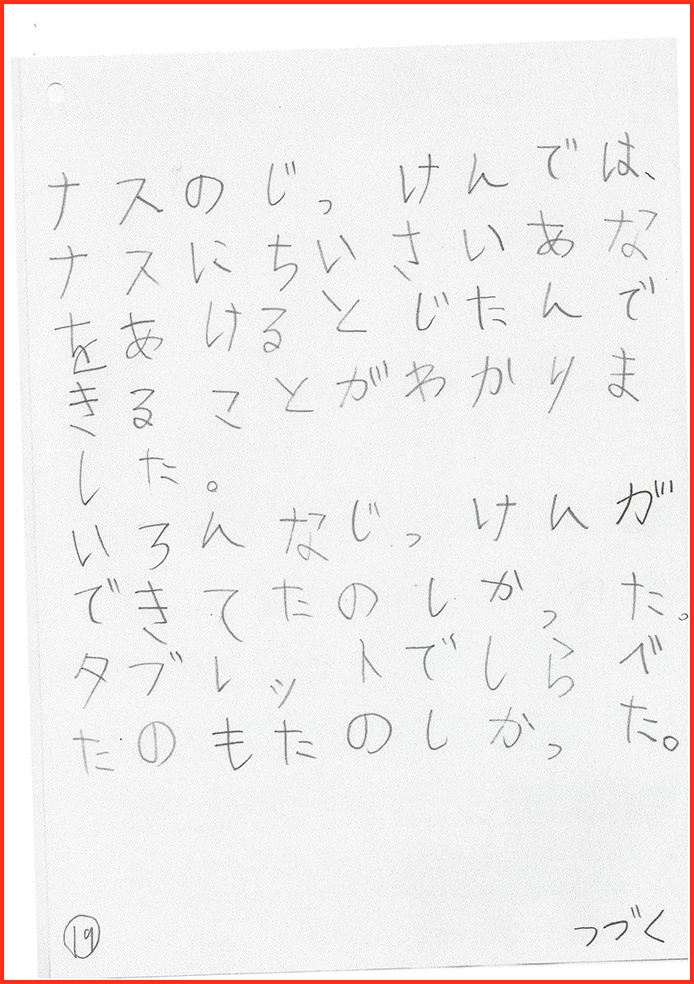 ナスのじっけんでは、
ナスにちいさいあな
をあけるとじたんで
きることがわかりま
した。
いろんなじっけんが
できてたのしかった。
タブレットでしらべ
たのもたのしかった。
19
つづく